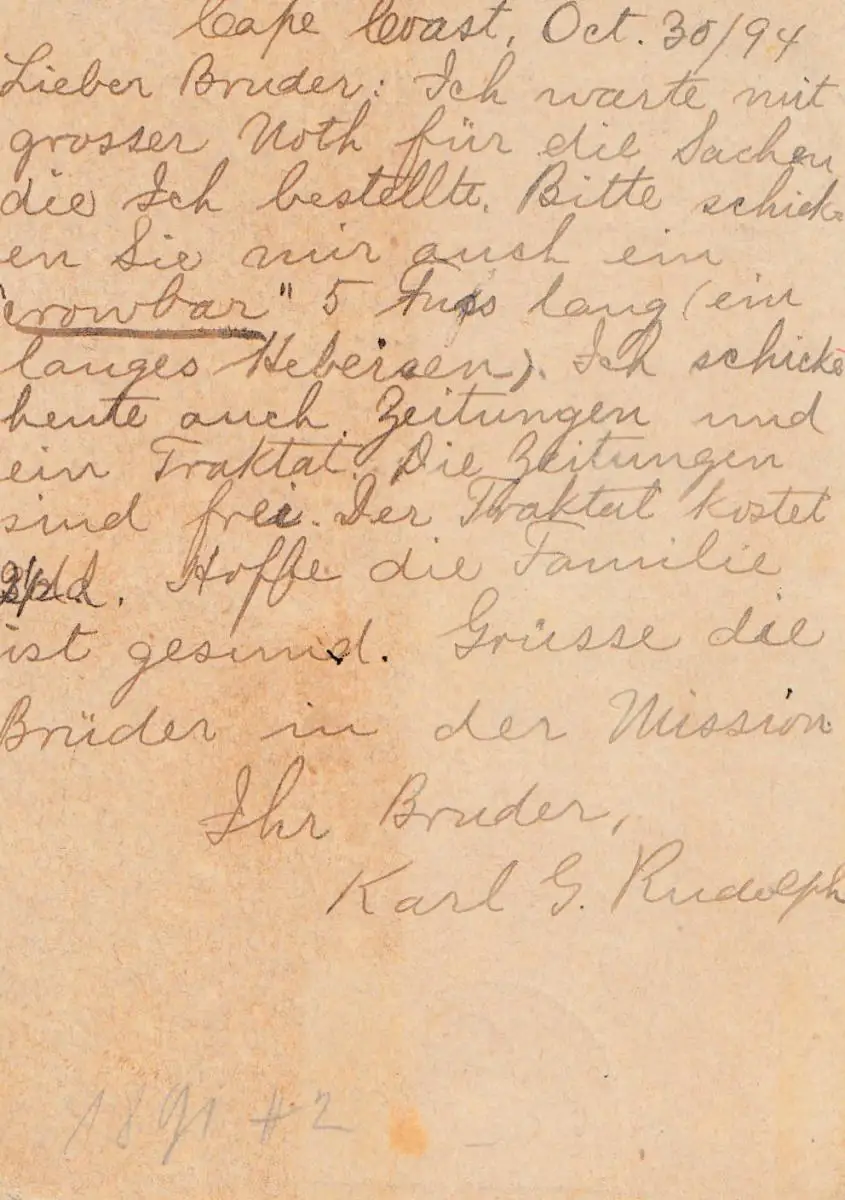 Cape Coast, Oct. 30/94
Lieber Bruder: Ich warte mit
grosser Noth für die Sachen
die Ich bestellte. Bitte schick-
en Sie mir auch ein
"crowbar" 5 Fuss lang (ein
langes Hebeisen). Ich schicke
heute auch Zeitungen und
ein Traktat. Die Zeitungen
sind frei. Der Traktat kostet
Hoffe die Familie
ist gesund. Grüsse die
Brüder in der Mission
Ihr Bruder,
Karl G. Rudolph
1891 #2